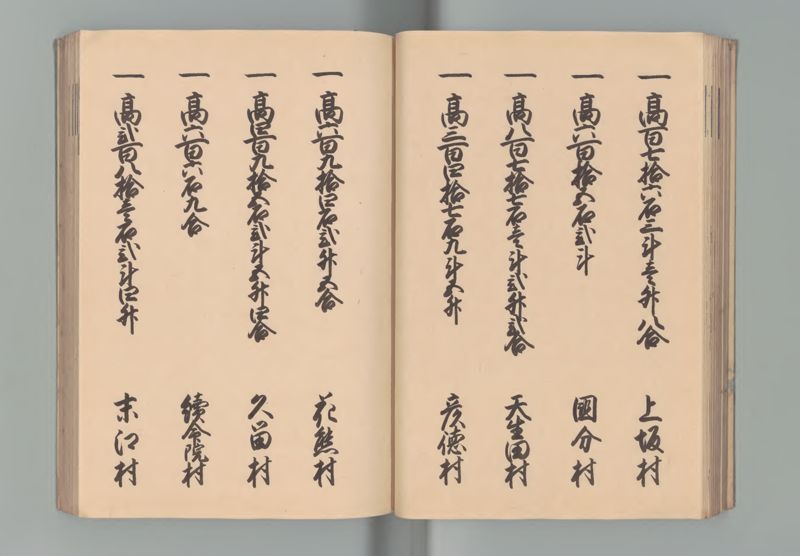 一 高百七拾六石三斗壱升八合 上坂村
一 高六百拾五石弐斗 國分村
一 高八百七拾七石壱斗弐升弐合 天生田村
一 高三百四拾七石九斗五升 彦徳村
一 高六百九拾四石弐升五合 花熊村
一 高四百九拾五石弐斗五升四合 久富村
一 高六百六石九合 續命院村
一 高弐百八拾壱石弐斗四升 末江村